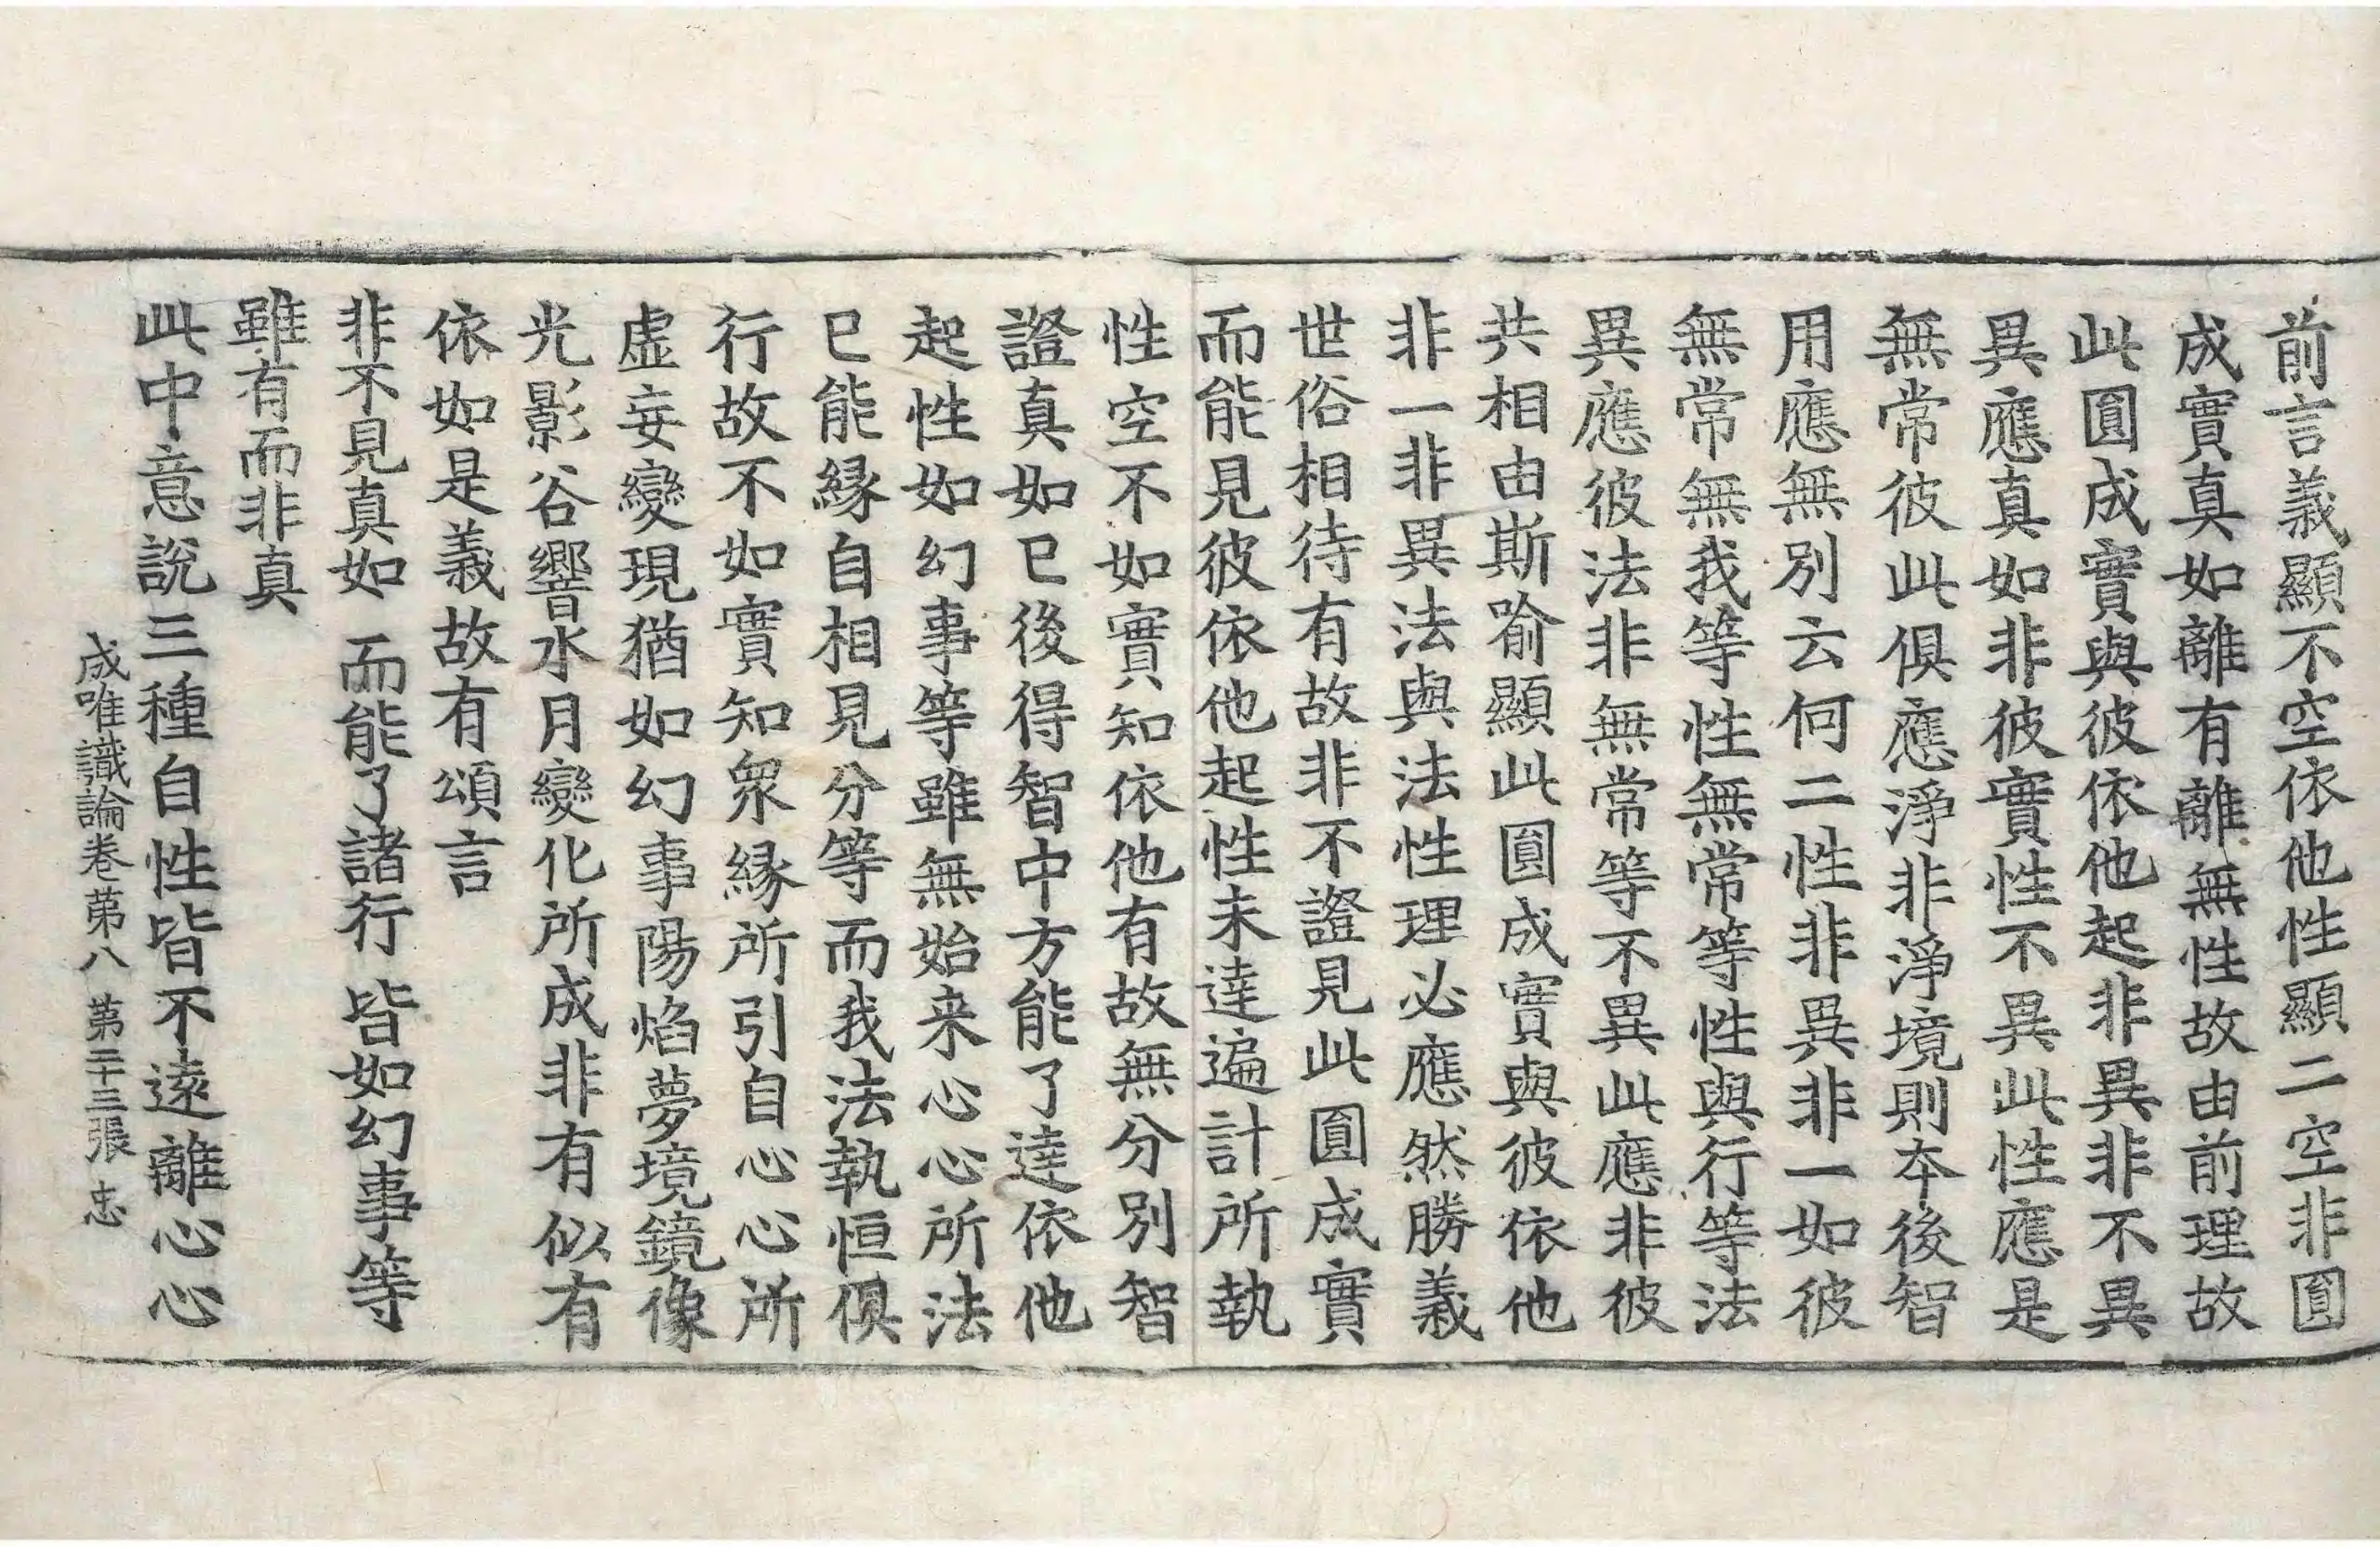 前言義顯不空依他性顯二空非圓
成實真如離有離無性故由前理故
此圓成實與彼依他起非異非不異
異應真如非彼實性不異此性應是
無常彼此俱應淨非淨境則夲後智
用應無別云何二性非異非一如彼
無常無我等性無常等性與行等法
異應彼法非無常等不異此應非彼
共相由斯喻顯此圓成實與彼依他
非一非異法與法性理必應然勝義
世俗相待有故非不證見此圓成實
而能見彼依他起性未達遍計所執
性空不如實知依他有故無分別智
證真如已後得智中方能了達依他
起性如幻事等雖無始来心心所法
已能緣自相見分等而我法執恒俱
行故不如實知眾緣所引自心心所
虛妄變現猶如幻事陽焰夢境鏡像
光影谷響水月變化所成非有似有
依如是義故有頌言
非不見真如 而能了諸行 皆如幻事等
雖有而非真
此中意說三種自性皆不遠離心心
成唯識論卷第八 第二十三張 忠